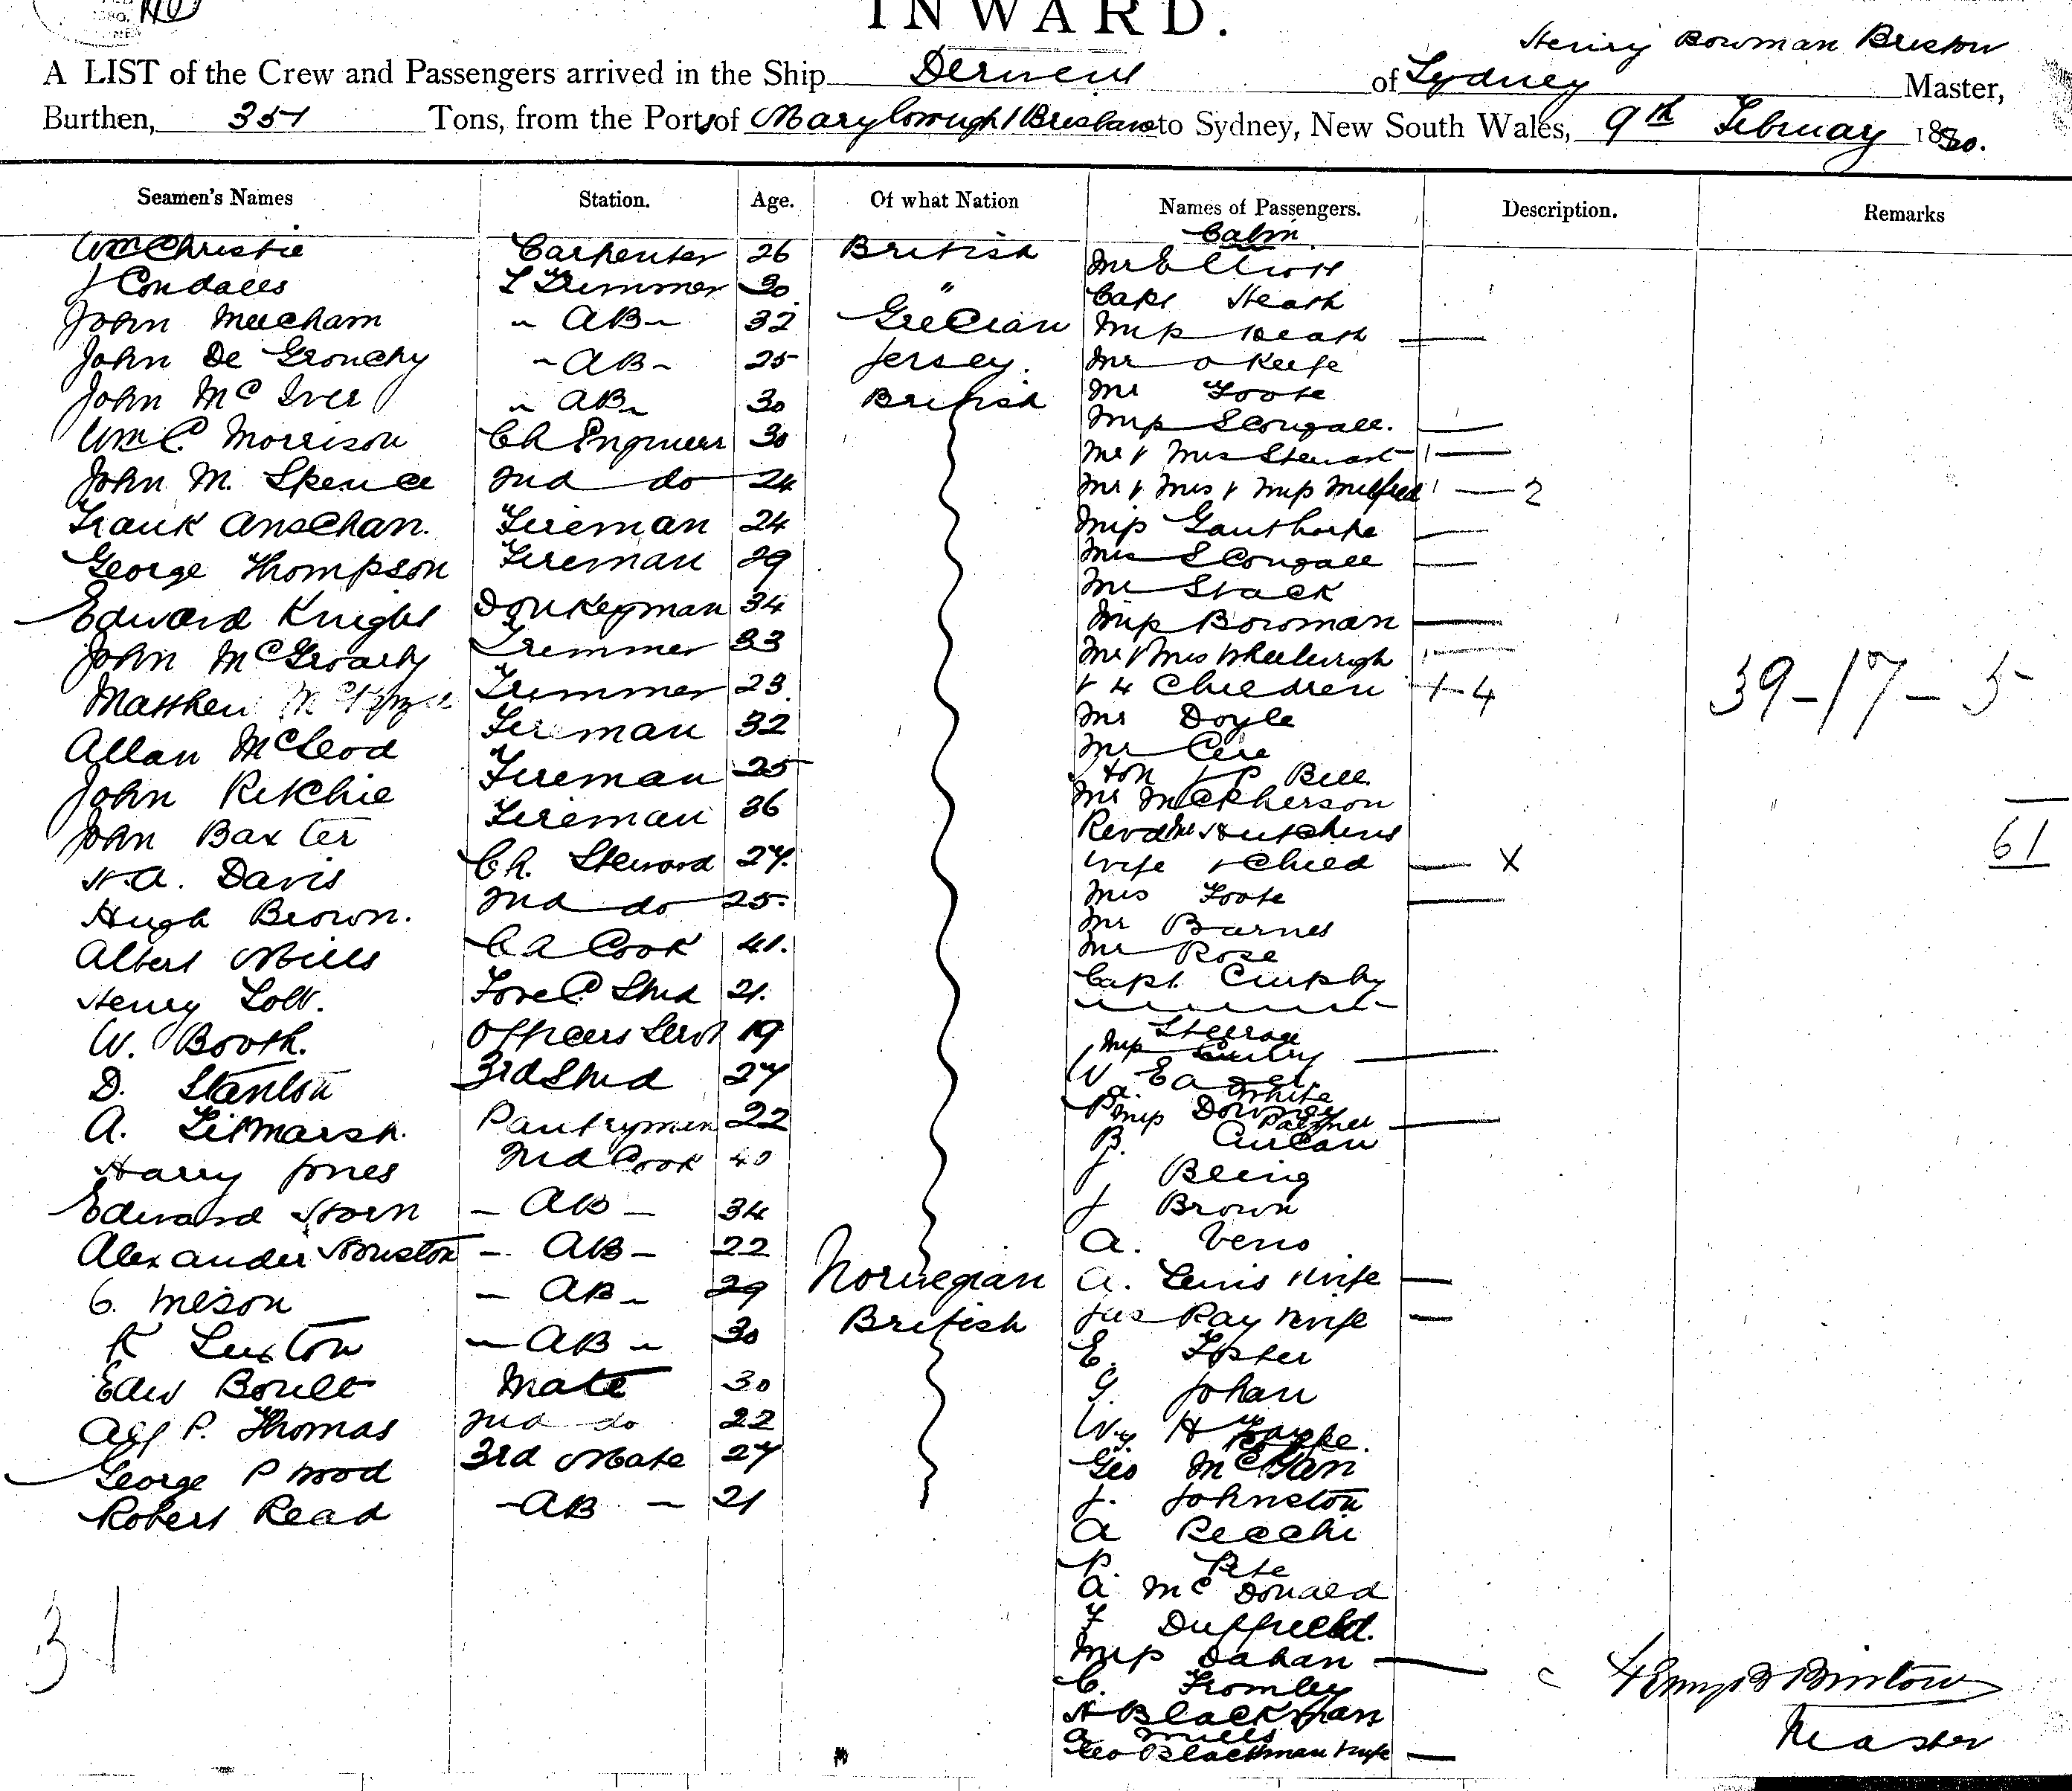 INWARD.
Henry Bowman Bristow
A LIST of the Crew and Passengers arrived in the Ship Derwent of Sydney Master,
Burthen, 351 Tons, from the Ports of Maryborough & Brisbane to Sydney, New South Wales, 9th February 1880.
Seamen's Names Station. Age. Of what Nation Names of Passengers. Description. Remarks
Cabin
Wm Christie Carpenter 26 British Mr Elliott
J Condalls L Trimmer 30 " Capt Heath
John Meecham AB 32 Grecian Miss Heath
John De Grouchy AB 25 Jersey. Mr O Keefe
John McIver AB 30 British Mr Foote
Wm C. Morrison Ch Engineer 30 Miss Scougall.
John M. Spence 2nd do 24 Mr & Mrs Stewart
Mr & Mrs & Miss 2
Frank Anschan. Fireman 24 Miss Gaunthorpe
George Thompson Fireman 29 Mrs Scougall
Mr Stack
Edward Knight Donkeyman 34 Miss Bowman
John McGroarty Trimmer 33 Mr & Mrs Wheelwright
Matthew Trimmer 23 & 4 Children 4
39-17-5
Allan McLeod Fireman 32 Mr Doyle
Mr
John Ritchie Fireman 25 Hon Bell
Mr McPherson
John Baxter Fireman 36 Revd Mr Hutchins
61
H.A. Davis Ch. Steward 27 wife & Child X
Hugh Brown. 2nd do 25 Mrs Foote
Mr Barnes
Albert Mills Ch Cook 41. Mr Rose
Henry Lott. Fore C. Stwd 21. Capt.
W. Booth. Officers Servt 19 Steerage
Miss
D. Stanton 3rd Stwd 27 W
A. White
A. Titmarsh. Pantryman 22 Miss Downey
Palmer
B.
Harry Jones 2nd Cook 40 J
Edward Horn AB 34 J Brown
Alexander Houston AB 22 A.
C. Meson AB 29 Norwegian A. Lewis & wife
R Luxton AB 30 British Jas Ray & wife
Edw Boult Mate 30 E. Foster
G. Johan
Alf P. Thomas 2nd do 22 W. H
George P Wood 3rd Mate 27 Geo
Robert Read AB 21 J. Johnston
A Recchi
P. Pete
A McDonald
F Duffield.
31
Miss Dahan
C. Fromley
Henry B Bristow
H Blackman
Master
A Mills
Geo Blackman & wife